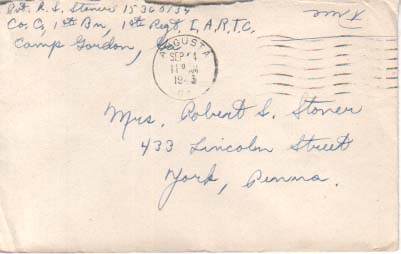 Pvt. R. S. Stoner 15360134
Co. C, 1st Bn, 1st Regt, I.A.R.T.C.
Camp Gordon, Ga
Free
AUGUSTA
SEP
11
AM
194
Mrs. Robert S. Stoner
433 Lincoln Street
York, Penna.